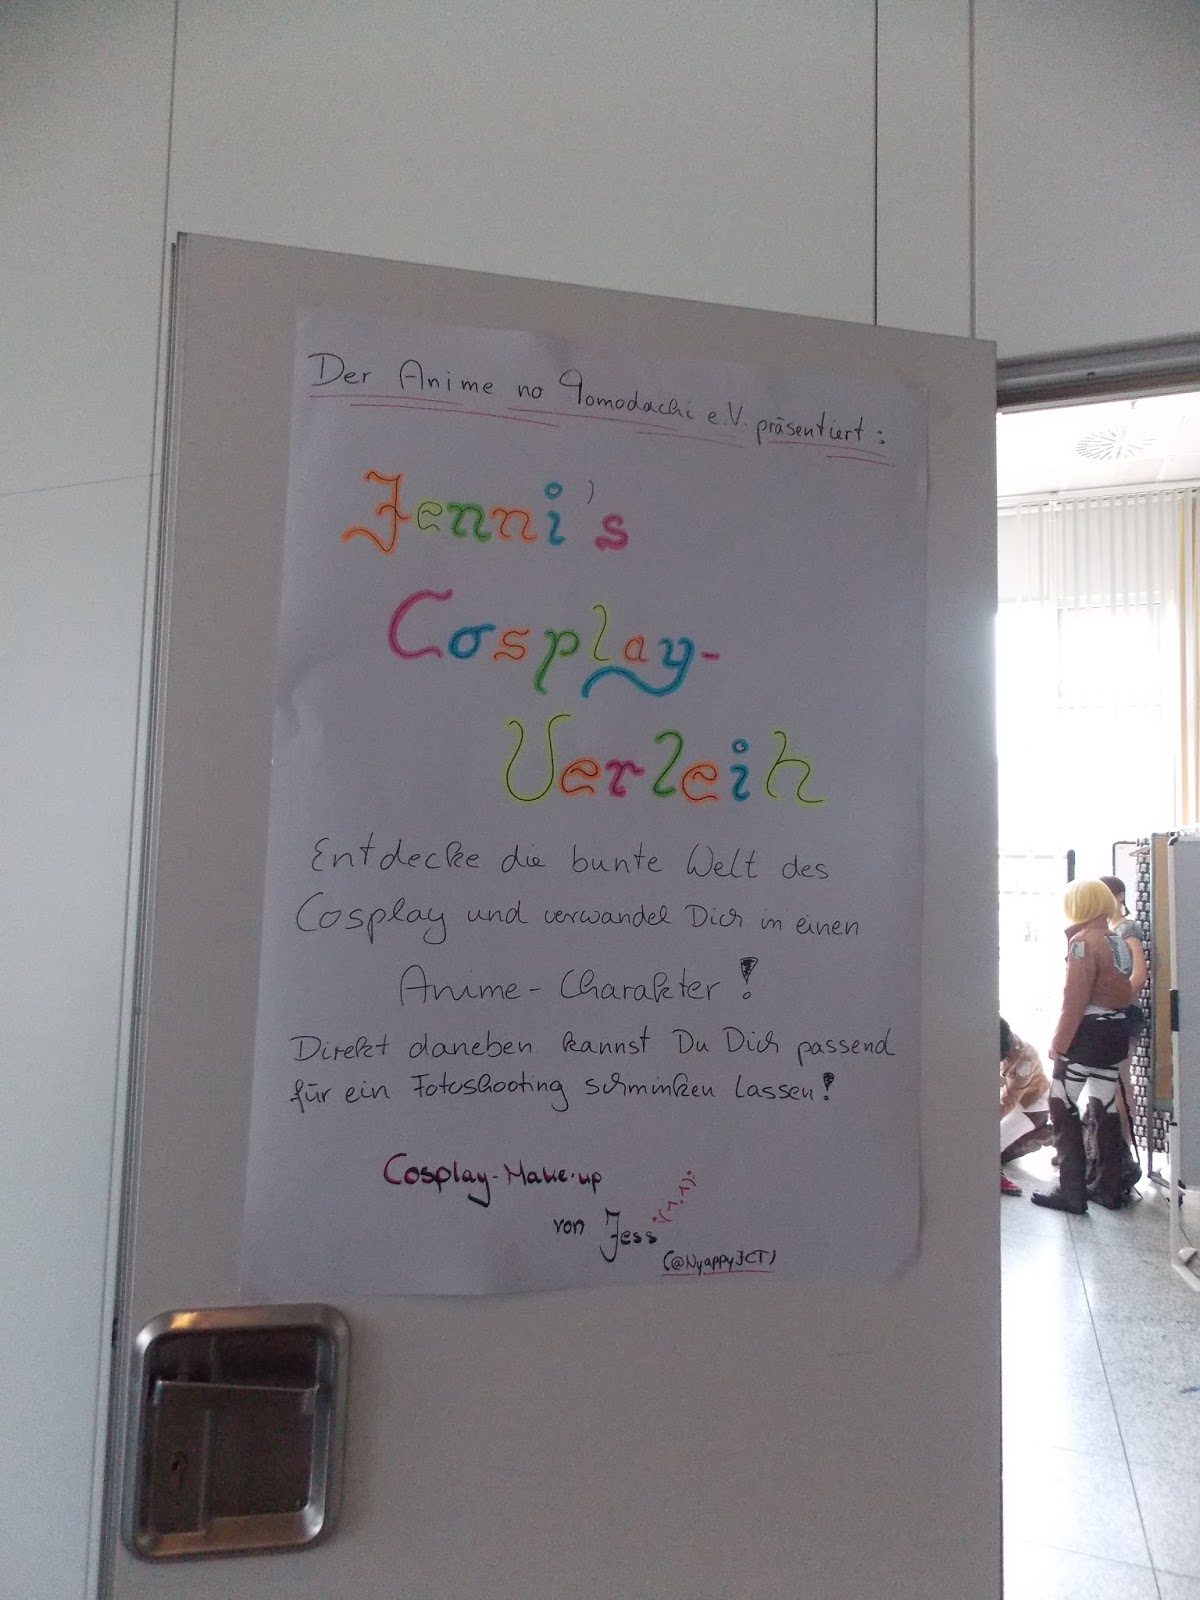 Der Anime no Tomodachi e.V. präsentiert:
Jenni's
Cosplay-
Verleih
Entdecke die bunte Welt des
Cosplay und verwandel Dich in einen
Anime-Charakter!
Direkt daneben kannst Du Dich passend
für ein Fotoshooting schminken lassen!
Cosplay-Make-up
von Jess
(@NyappyJCT)